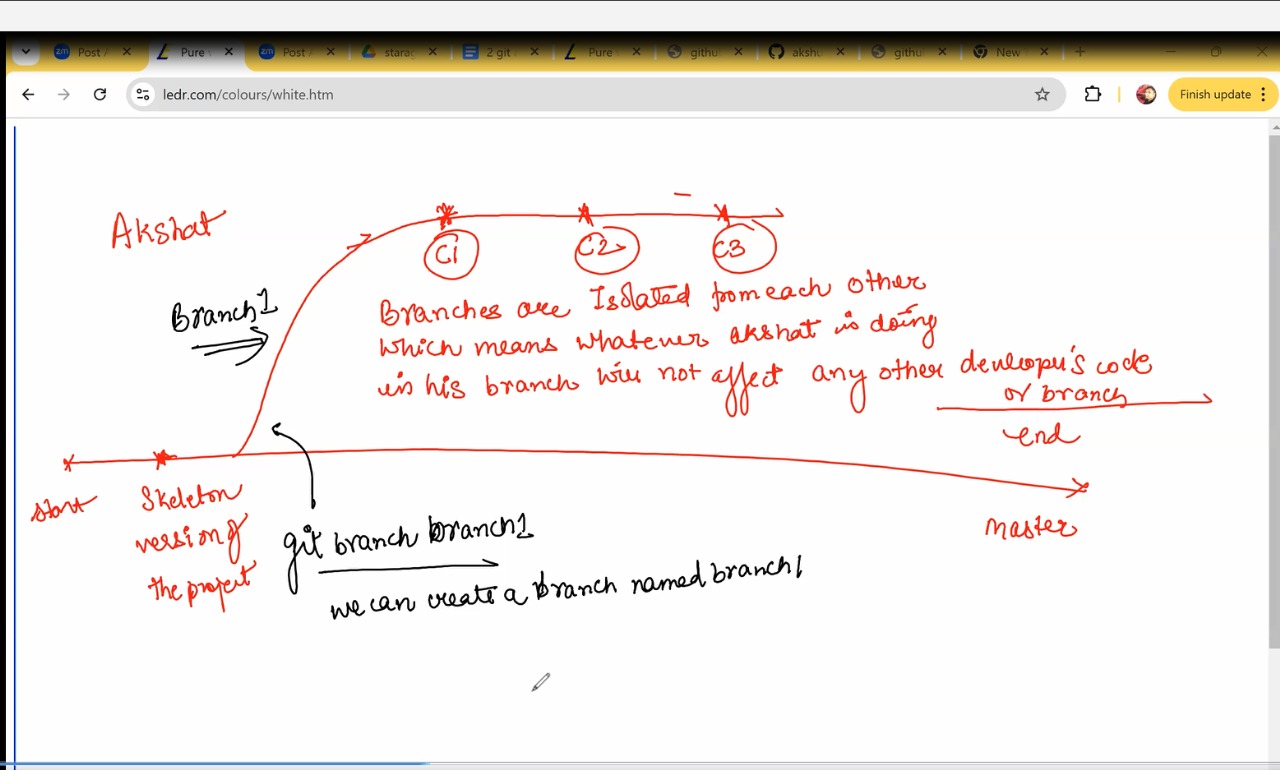 Post /
Pure
Post /
starag
2 git
Pure
githu
akshu
githu
New
ledr.com/colours/white.htm
Finish update
Akshat
C1
C2
C3
Branch1
Branches are Isolated from each other
which means whatever akshat is doing
in his branch will not affect any other developer's code
or branch
end
start
Skeleton
version of
the project
master
git branch branch1
we can create a branch named branch1